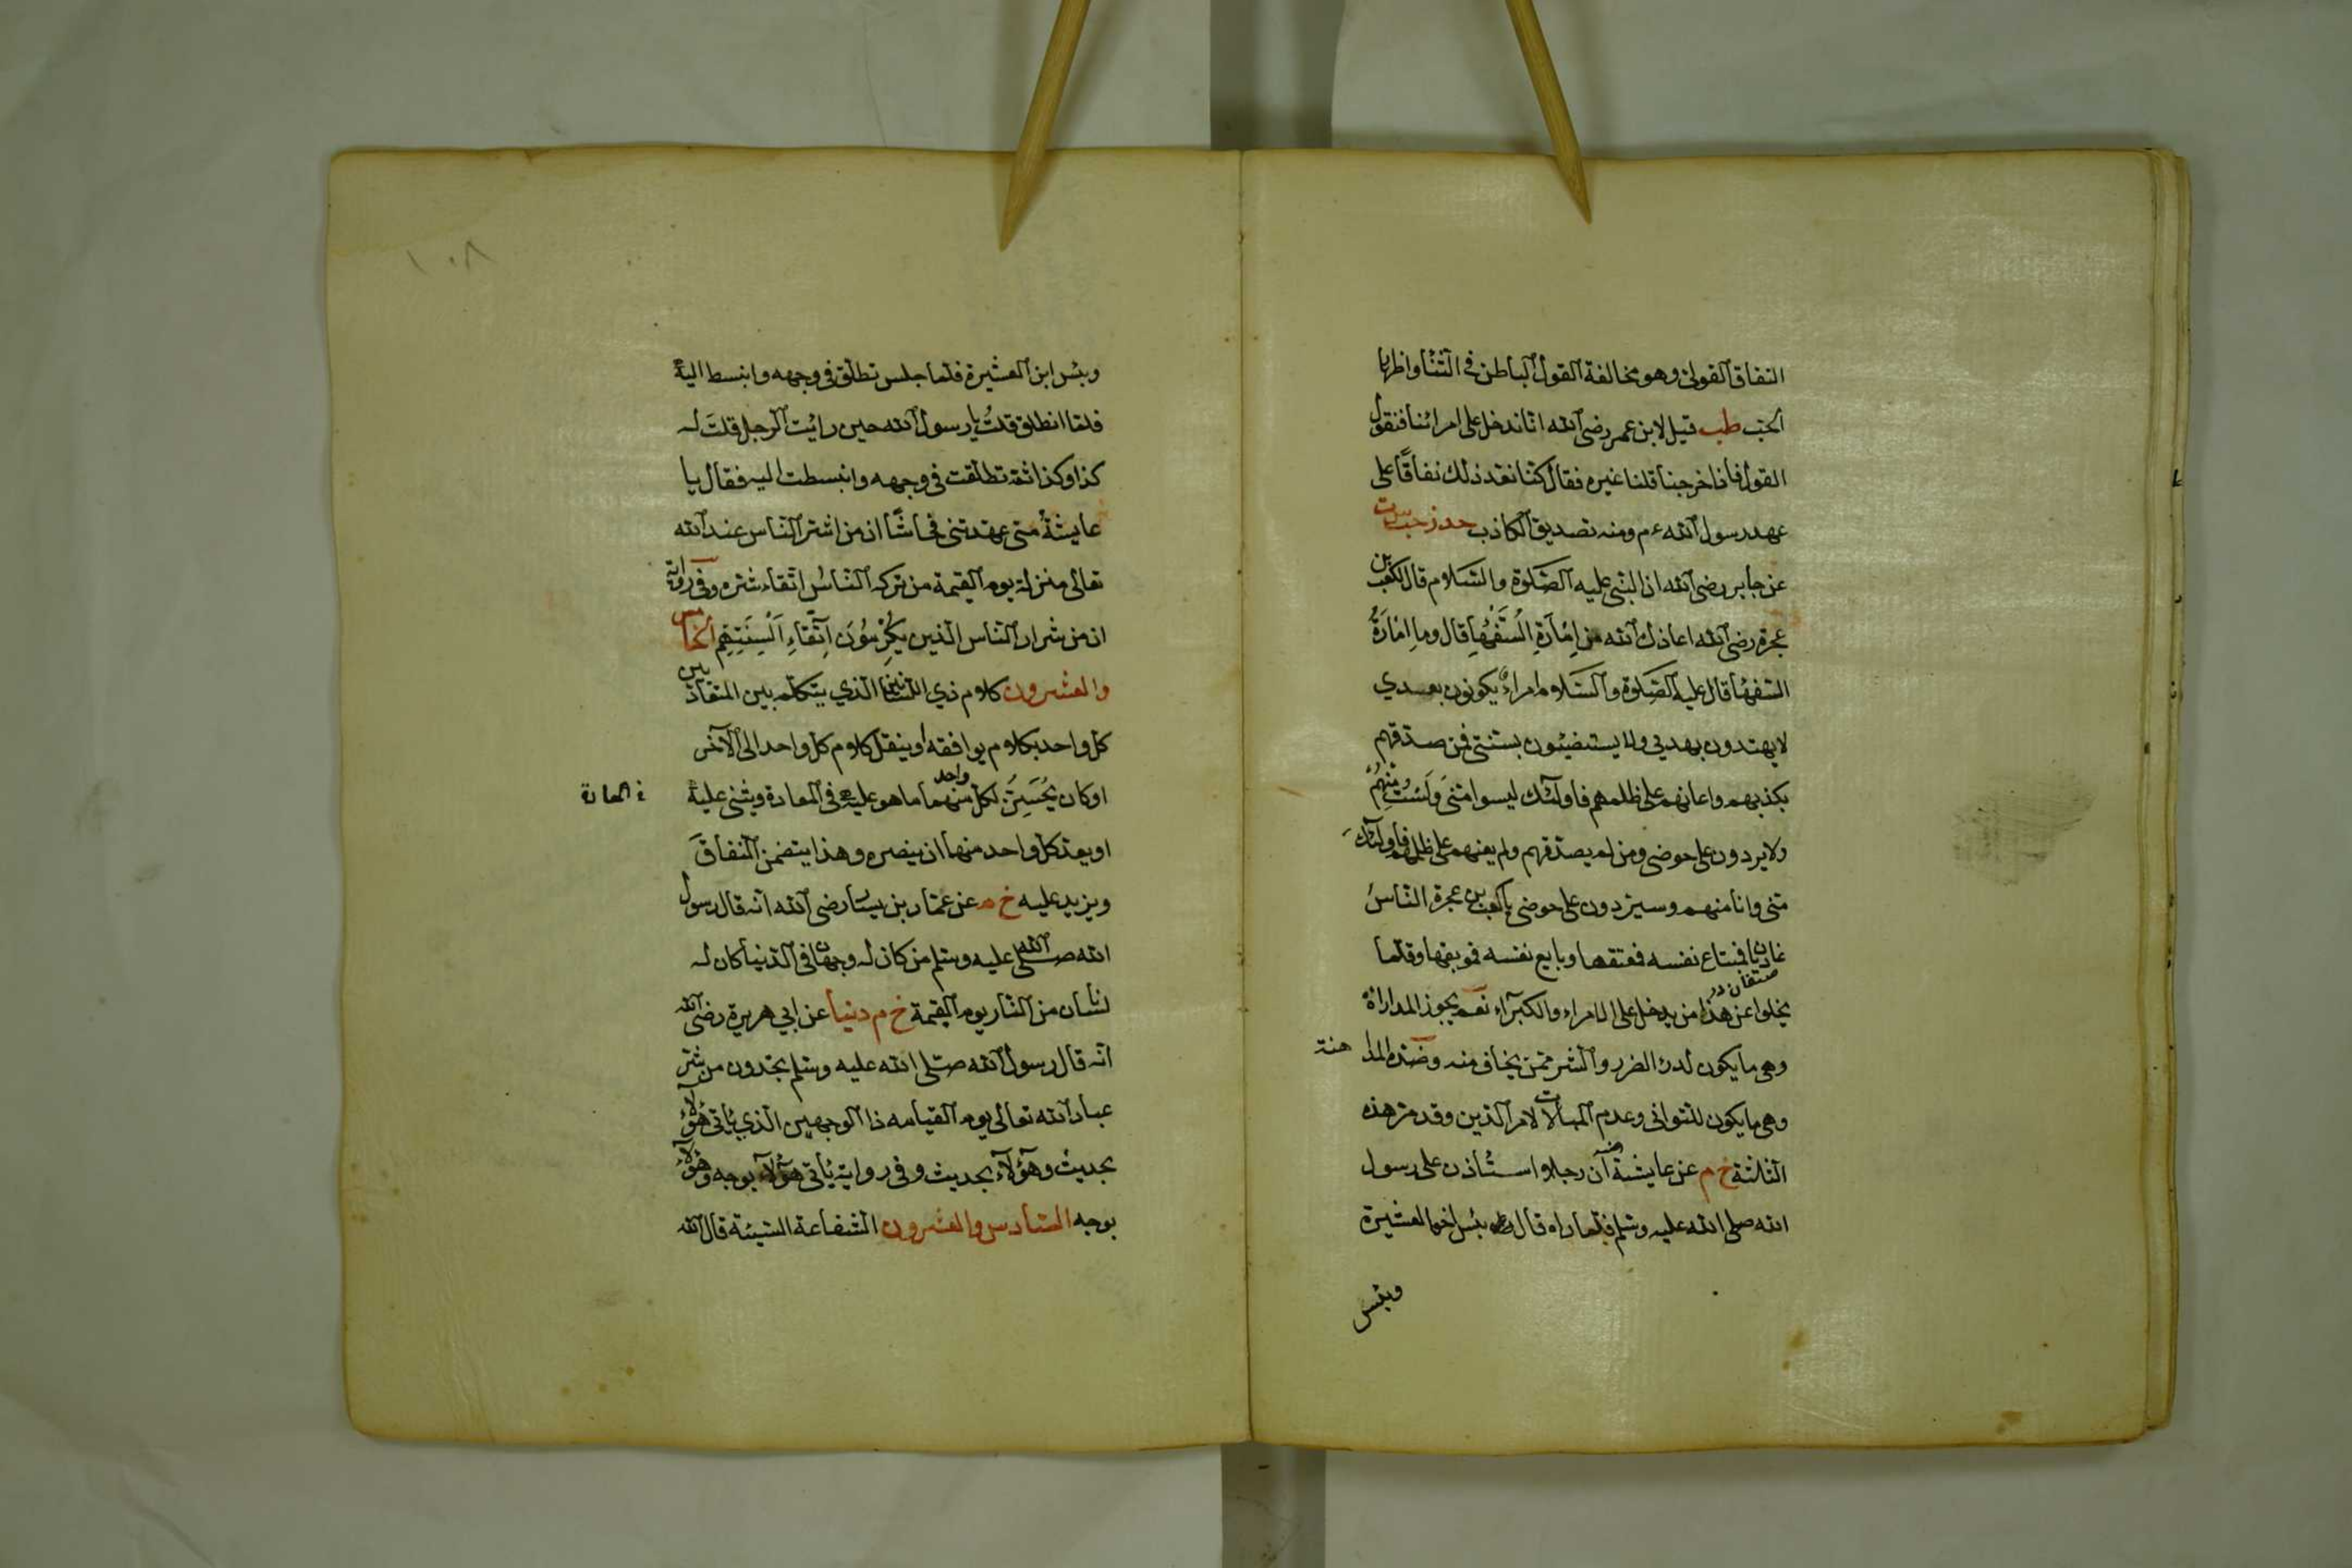 النفاق القولى وهو مخالفة القول الباطن فى الثنا واظهار
الحب طب قيل لابن عمر رضى الله انا ندخل على امرائنا فنقول
القول فاذا خرجنا قلنا غيره فقال كنا نعد ذلك نفاقًا على
عهد رسول الله ءم ومنه تصديق الكاذب حد زحب
عن جابر رضى الله ان النبى عليه الصلوة والسلام قال لكعب بن
عجرة رضى الله اعاذك الله من اِمَارَةِ السُّفَهَاِ قال وما اِمَارَةُ
السفهاُ قال عليه الصلوة والسلام امراءٌ يكونون بعدي
لا يهتدون بهديي ولا يستنضيئون بسنتى فمن صدقهم
بكذبهم واعانهم على ظلمهم فاولئك ليسوا منى وَلَسْتُ مِنْهُمْ
ولا يردون على حوضى ومن لم يصدقهم ولم يعنهم على ظلمهم فاولئك
منى وانا منهم وسيردون على حوضى يا كعب بن عجرة الناسُ
غاديان فبتاع نفسه فمعتقها وبايع نفسه فموبقها وقلما
يخلوا عن هذا من يدخل على الامراء والكبراء نعم يجوز المداراة
وهى ما يكون لدرء الضرر والشر ممن يخاف منه وضده المدا هنة
وهى ما يكون للتوانى وعدم المبالات لامر الدين وقد مر هذه
الثلثة خ م عن عايشة رض آن رجلا استأذن على رسول
الله صلى الله عليه وسلم فلما راه قال بئس اخو العشيرة
وبئس
١٠٨
وبئس ابن العشيرة فلما جلس تطلق فى وجهه وانبسط اليه
فلما انطلق قلتُ يا رسول الله حين رائت الرجل قلتَ له
كذا وكذا ثم تطلقت فى وجهه وانبسطت اليه فقال يا
عايشةُ متى عهدتنى فحاشًا ان من اشر الناس عند الله
تعالى منزلة يوم القيمة من تركه الناسُ اتقاء شره وفى رواية
ان من شرار الناس الذين يُكْرِمُونَ اِتِّقَاءِ اَلْسِنَتِهِم الخامس
والعشرون كلام ذي اللسانين الذي يتكلم بين المتعاديين
كل واحد بكلام يوافقه او ينقل كلام كل واحد الى الآخر
او كان يُحَسِّنَ لكل واحد منهما ما هو عليه فى المعادة ويثنى عليه
فى المعادة
او يعد كل واحد منهما ان ينصره وهذا يتضمن النفاقَ
ويزيد عليه خ م عن عمار بن يسار رضى الله انه قال رسول
الله صلى الله عليه وسلم من كان له وجهان فى الدنيا كان له
لسانان من النار يوم القيمة خ م دنيا عن ابي هريرة رضى الله
انه قال رسول الله صلى الله عليه وسلم تجدون من شر
عباد الله تعالى يوم القيامه ذا الوجهين الذي يأتى هؤلاء
بحديث وهؤلاء بحديث وفى رواية يأتى هؤلاء بوجه وهؤلاء
بوجه السادس والعشرون الشفاعة السيئة قال الله